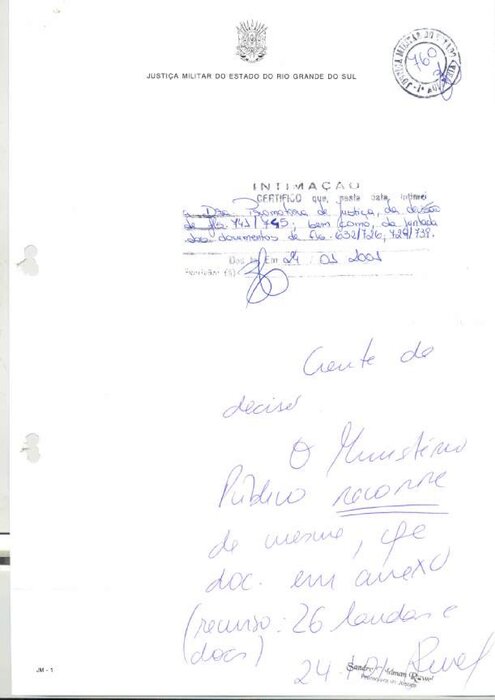 JUSTIÇA MILITAR DO ESTADO DO RIO GRANDE DO SUL
760
INTIMAÇÃO
CERTIFICO que, nesta data, intimei
a Dra. Promotora de Justiça, da decisão
de fls. 741/745, bem como, da juntada
dos documentos de fls. 632/726, 729/739.
Em 24 . 01 2001
Escrivão (ã)
Ciente da
decisão
O Ministério
Público recorre
da mesma, cfe
doc. em anexo
(recurso: 26 laudas e
docs)
24
Promotora de Justiça
JM - 1